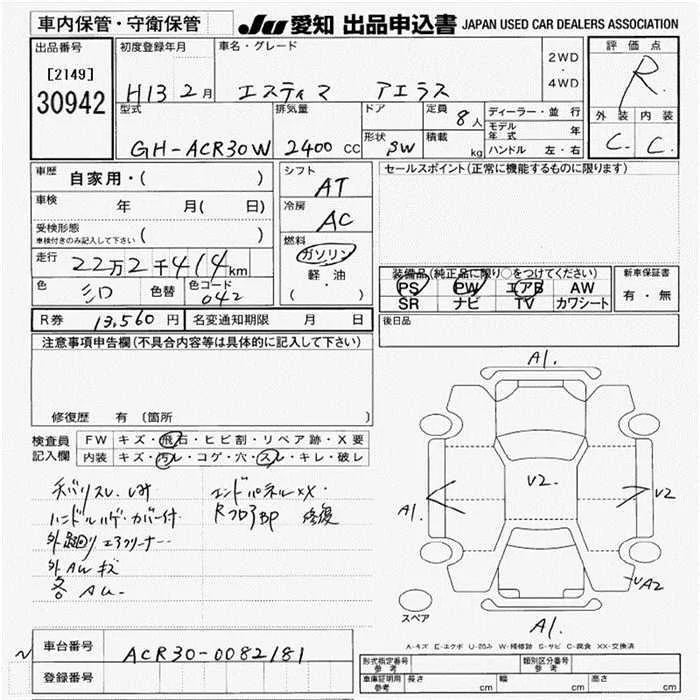 車内保管・守衛保管
JU 愛知 出品申込書 JAPAN USED CAR DEALERS ASSOCIATION
出品番号
[2149]
30942
初度登録年月
H13 2月
車名・グレード
エスティマ アエラス
2WD
・
4WD
評価点
R
外装 内装
C. C.
型式
GH-ACR30W
排気量
2400 CC
ドア
形状
SW
定員
8人
積載
kg
ディーラー・並行
モデル年式 年
ハンドル 左・右
車歴
自家用・( )
車検
年 月( 日)
受検形態
車検付きのみ記入して下さい ( )
走行
22万2千414km
色
シロ
色替
色コード
042
シフト
AT
冷房
AC
燃料
ガソリン
軽油
( ・ )
セールスポイント(正常に機能するものに限ります)
装備品(純正品に限り○をつけてください)
PS PW エアB AW
SR ナビ TV カワシート
新車保証書
有・無
R券 13,560 円 名変通知期限 月 日
後日品
注意事項申告欄(不具合内容等は具体的に記入して下さい)
修復歴 有 〔箇所 〕
検査員
記入欄
FW キズ・飛石・ヒビ割・リペア跡・X要
内装 キズ・汚レ・コゲ・穴・スレ・キレ・破レ
ハンドルハゲ・カバー付
エンドパネルXX・
修復
エアクリーナー
外AWキズ
各AU-
A1.
A1.
V2.
V2
A2
A1.
スペア
A-キズ E-エクボ U-凹み W-補修跡 S-サビ C-腐食 XX-交換済
車台番号
ACR30-0082181
登録番号
形式指定番号
参考
類別区分番号
参考
車庫証明用
参考
長さ cm
幅 cm
高さ cm